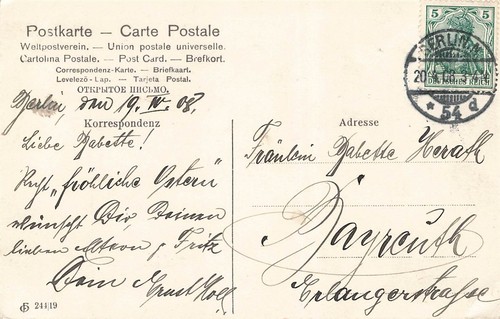 Postkarte — Carte Postale
Weltpostverein. — Union postale universelle.
Cartolina Postale. — Post Card. — Brefkort.
Correspondenz-Karte. — Briefkaart.
Levelező-Lap. — Tarjeta Postal.
ОТКРЫТОЕ ПИСЬМО.
Berlin, den 19. IV. 08.
Korrespondenz
Liebe Babette!
Recht "fröhliche Ostern"
wünscht Dir, Deinen
lieben Fritz
Dein Ernst
24419
Adresse
Fräulein Babette Herath
Bayreuth
Erlangerstrasse
5 5
DEUTSCHES REICH
BERLIN, N.
* 54 d